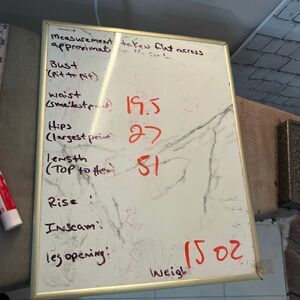 measurements taken flat across
approximat
Bust
(pit to pit)
waist
(smallest point) 19.5
Hips
(largest point) 27
length
(TOP to Hem) 51
Rise :
Inseam :
leg opening :
Weigh 15 oz